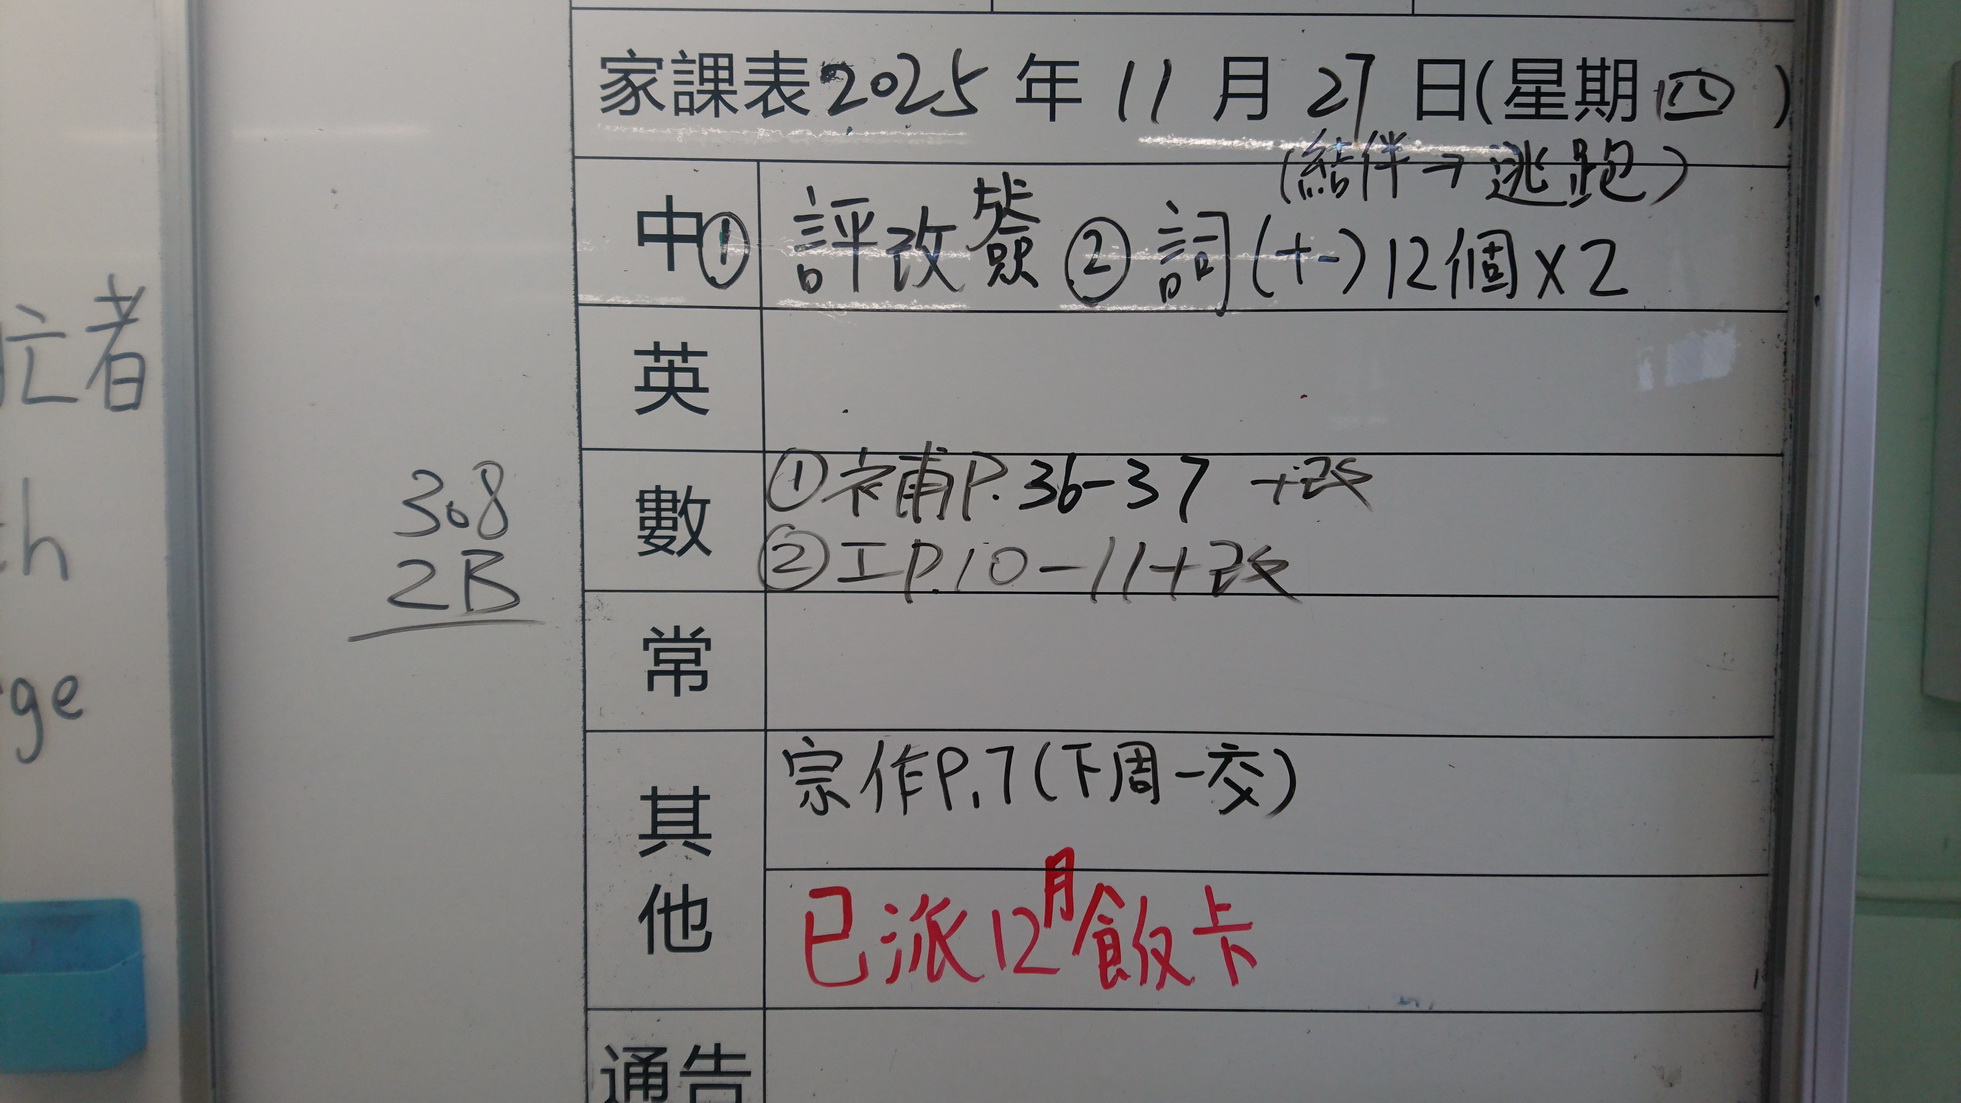 家課表2025年11月27日(星期四)
(結伴→逃跑)
中 ①評改簽 ②詞(十一)12個×2
英
數 ①補P.36-37 +改
②工P.10-11+改
常
其他 宗作P.7(下周一交)
已派12月飯卡
通告
308
2B
亡者
th
ge